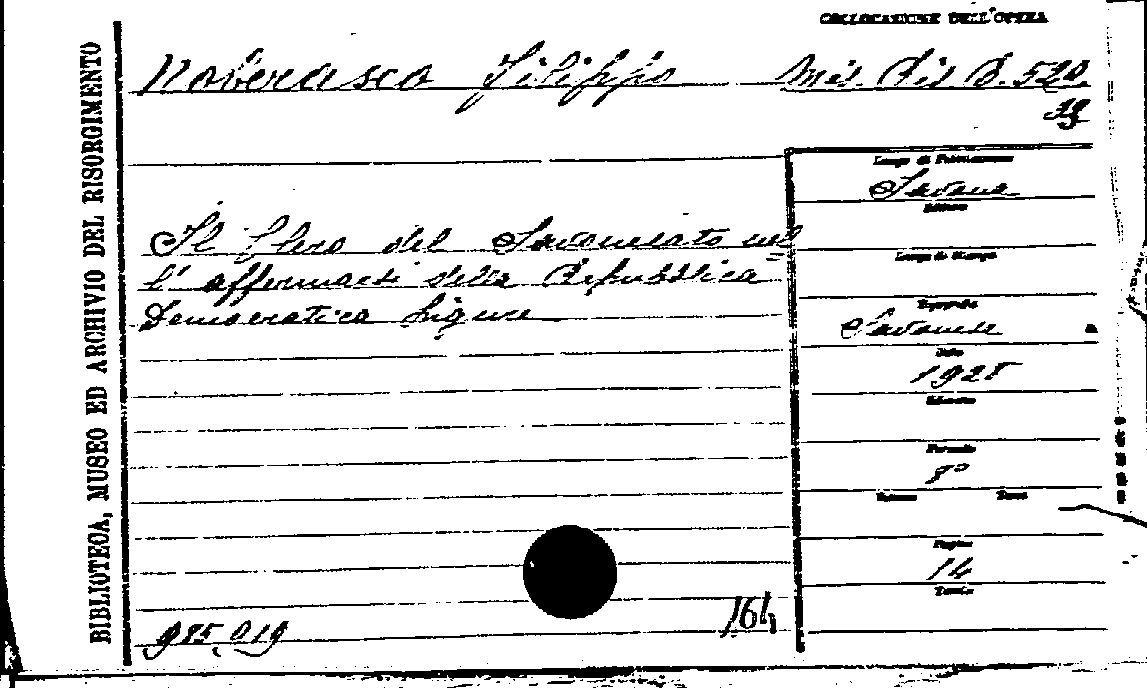 COLLOCAZIONE DELL'OPERA
Noberasco Filippo Mis. Ris B. 520
19
BIBLIOTECA, MUSEO ED ARCHIVIO DEL RISORGIMENTO
Luogo di Pubblicazione
Savona
Editore
Il Clero del Savonesato nel
l'affermarsi della Repubblica
Democratica Ligure
Luogo di Stampa
Tipografia
Savonese
Data
1928
Edizione
Formato
8°
Volume Tomo
Pagine
14
Tavole
985.019
164